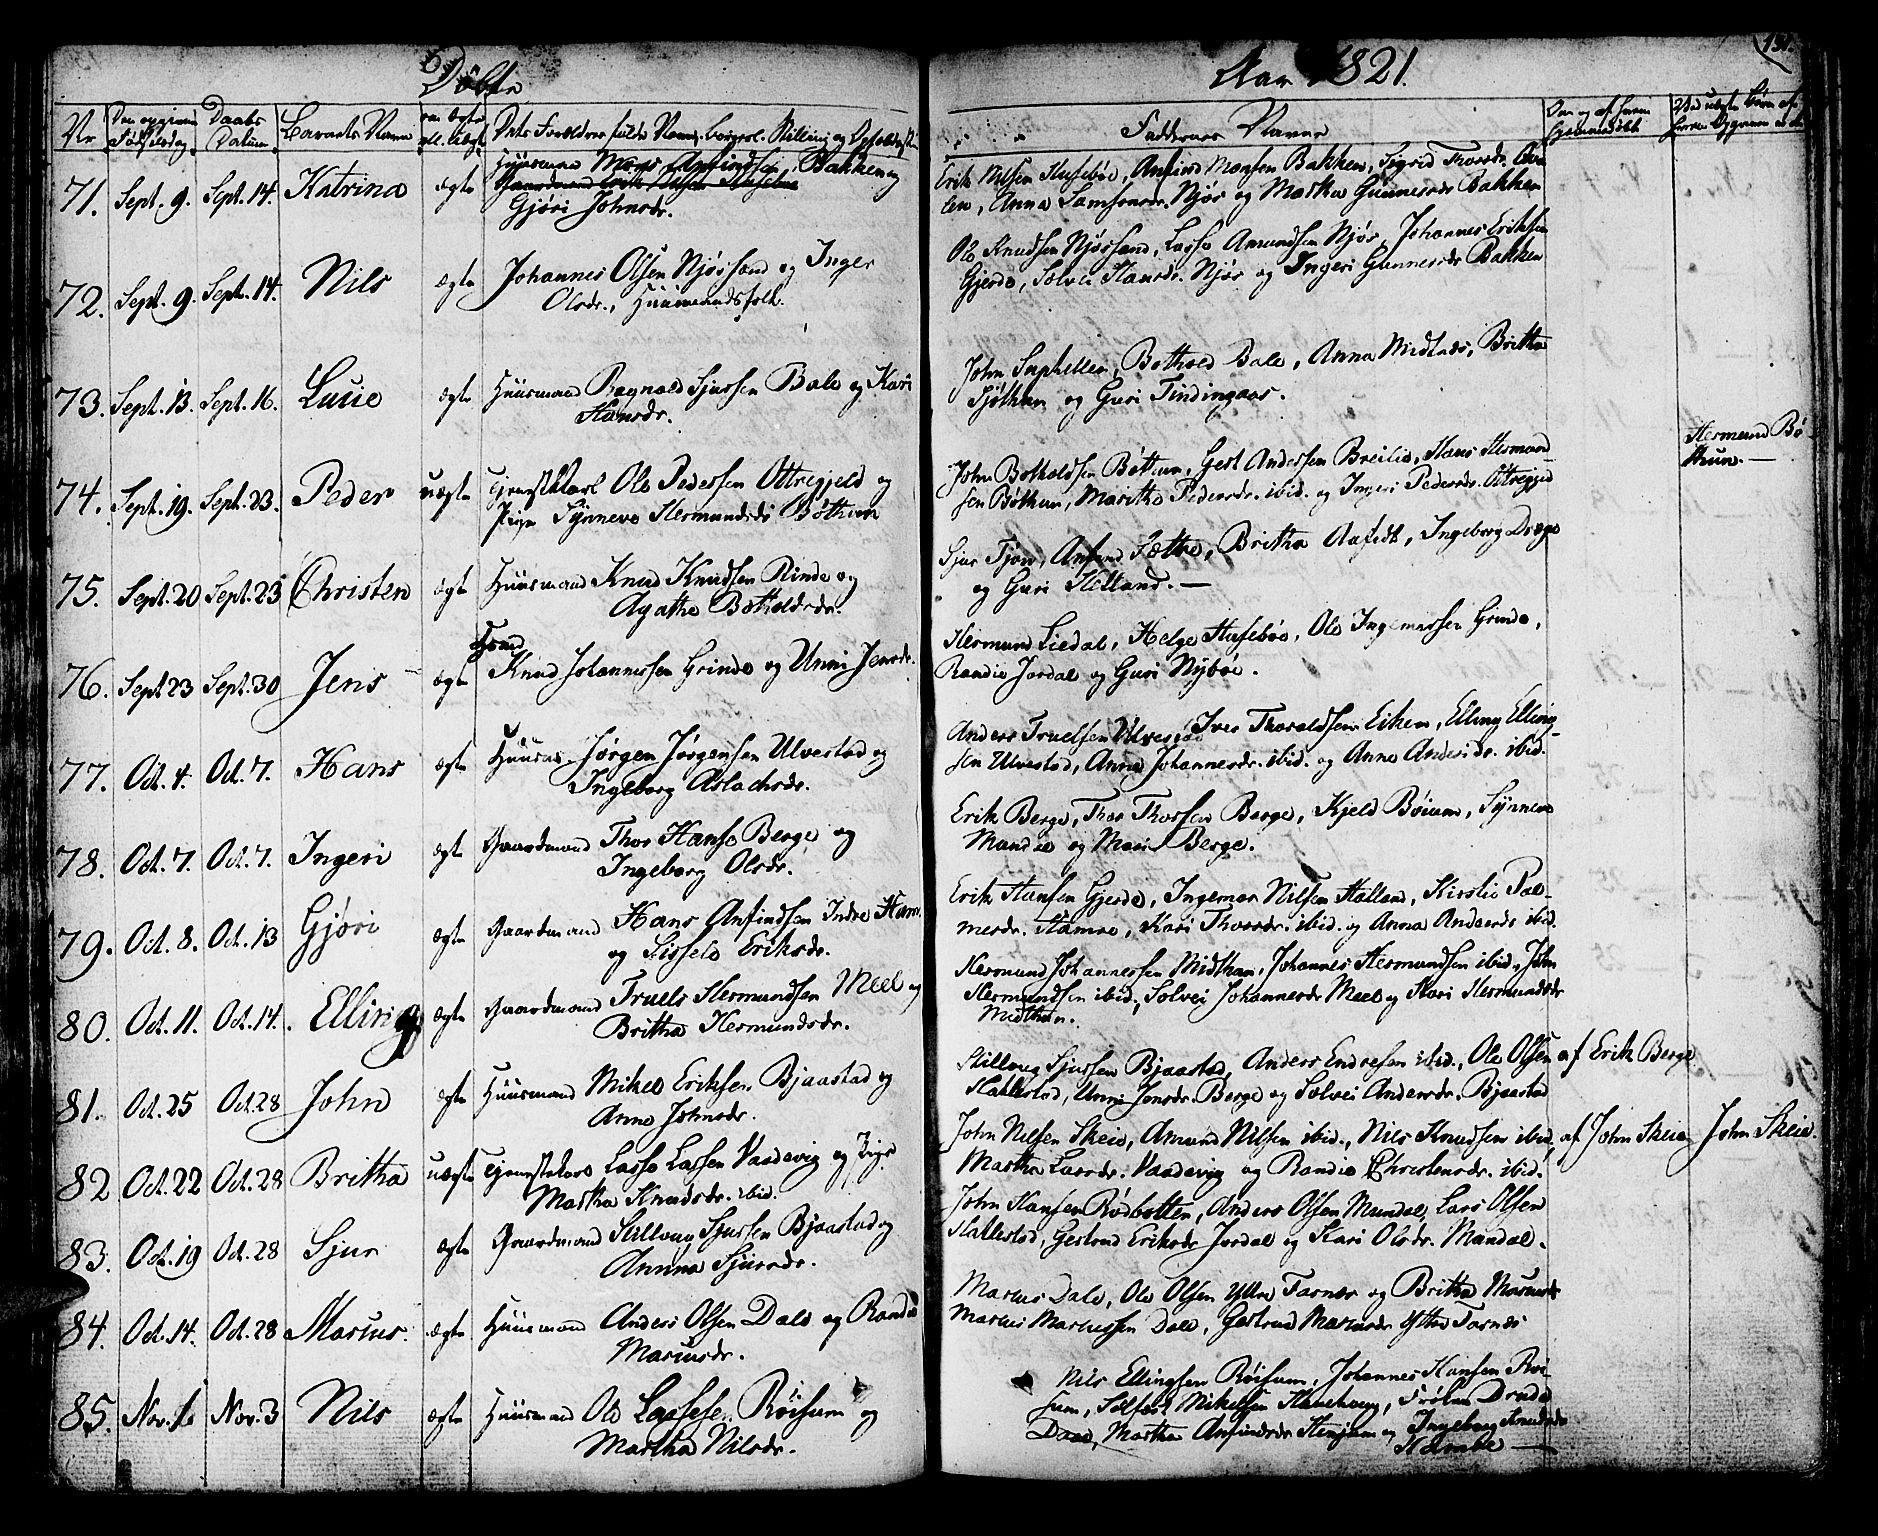 Døbte
Aar 1821.
131.
Nr
Den opgivne Fødselsdag
Daabs Datum
Barnets Navn
om ægte ell. uægte
Dets Forældres fulde Navne, borgerl. Stilling og Opholdssted
Faddernes Navne
71. Sept. 9. Sept. 14. Katrina ægte Huusmand Mons Anfindsen Bakken og
Gaardmand Erik Nilsen Husebøe
Gjøri Johnsdr.
Erik Nilsen Husebøe, Anfind Monsen Bakken, Sigrid Thorsdr.
Anna Samsonsdr. Njøs og Martha Gunnersdr Bakken
72. Sept. 9. Sept. 14. Nils ægte Johannes Olsen Njøssand og Inger
Olsdr., Huusmandsfolk.
Ole Knudsen Njøssand, Lasse Amundsen Njøs, Johannes Eriksen
Gjerde, Solvei Hansdr. Njøs og Ingeri Gunnersdr Bakken
73. Sept. 13. Sept. 16. Lucie ægte Huusmand Ragnald Sjursen Bale og Kari
Hansdr.
John Suphellen, Bothold Bale, Anna Midlads, Britha
Sjøthun og Guri Tindingaas.
74. Sept. 19. Sept. 23. Peder uægte Tjenstekarl Ole Pedersen Ottregjeld og
Pige Synneve Hermundsdr Bøthun
John Botholdsen Bøthun, Gest Andersen Breilie, Hans Hermund
sen Bøthun, Maritha Pedersdr. ibid. og Ingeri Pedersdr. Ottregjeld
Hermund Bø
thun. —
75. Sept. 20 Sept. 23 Christen ægte Huusmand Knud Knudsen Rinde og
Agatha Botholdsdr.
Sjur Tjon, Anfind Sætre, Britha Aafedt, Ingeborg Dræge
og Guri Hetland. —
76. Sept 23 Sept. 30 Jens ægte Knud Johannessen Grinde og Unni Jensdr.
Hermund Liedal, Helge Husebøe, Ole Ingemarsen Grinde,
Randie Jordal og Guri Nybøe.
77. Oct. 4. Oct. 7. Hans ægte Huusm. Jørgen Jørgensen Ulvestad og
Ingeborg Aslachsdr.
Anders Truelsen Ulvestad, Iver Thoraldsen Eiken, Elling Elling-
sen Ulvestad, Anna Johannesdr. ibid. og Anna Andersdr. ibid.
78. Oct. 7. Oct. 7. Ingeri ægte Gaardmand Thor Hansen Berge og
Ingeborg Olsdr.
Erik Berge, Thor Thorsen Berge, Kjeld Bøium, Synneve
Mundal og Mari Berge.
79. Oct. 8. Oct. 13 Gjøri ægte Gaardmand Hans Anfindsen Indre Hamre
og Sissele Eriksdr.
Erik Hansen Gjerde, Ingemar Nilsen Hatland, Kirstie Pal-
mesdr. Hamre, Kari Thorsdr. ibid. og Anna Andersdr ibid.
80. Oct. 11. Oct. 14. Elling ægte Gaardmand Truels Hermundsen Meel og
Britha Hermundsdr.
Hermund Johannessen Midthun, Johannes Hermundsen ibid., John
Hermundsen ibid., Solvei Johannesdr Meel og Kari Hermundsdr
Midthun.
81. Oct. 25 Oct. 28 John ægte Huusmand Mikel Eriksen Bjaastad og
Anna Johnsdr.
Skilloug Sjursen Bjaastad, Anders Endresen ibid., Ole Olsen
Hatlestad, Unni Jonsdr. Berge og Solvei Andersdr. Bjaastad
af Erik Berge
82 Oct. 22 Oct. 28 Britha uægte Tjenstekarl Lasse Lassen Vaadevig og Pige
Martha Knudsdr. ibid.
John Nilsen Skeie, Amund Nilsen ibid., Nils Knudsen ibid.,
Martha Larsdr. Vaadevig og Randie Christensdr. ibid.
af John Skeie
John Skeie.
83. Oct. 19 Oct. 28 Sjur ægte Gaardmand Skilloug Sjursen Bjaastad og
Annna Sjursdr.
John Hansen Rødbotten, Anders Olsen Mundal, Lars Olsen
Hatlestad, Gertrud Eriksdr Jordal og Kari Olsdr. Mundal.
84. Oct. 14. Oct. 28 Marcus. ægte Huusmand Anders Olsen Dale og Randie
Marcusdr.
Marcus Dale, Ole Olsen Yttre Farnæs og Britha Marcusdr
Marcus Marcussen Dale, Gertrud Marcusdr Yttre Farnæs
85. Nov. 1. Nov. 3 Nils ægte Huusmand Ole Lassesen Røisum og
Martha Nilsdr.
Nils Ellingsen Røisum, Johannes Hansen Røi
sum, Mikelsen Frøken Drude
Daae, Martha Anfindsdr Henjum og Ingeborg Knudsdr